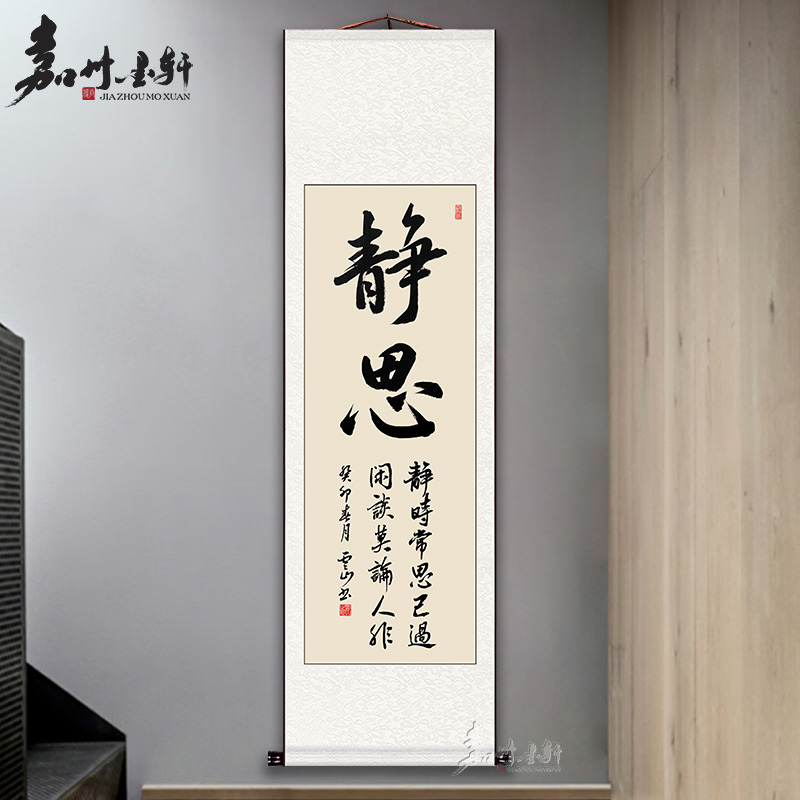 嘉州墨轩
JIAZHOUMOXUAN
静思
静時常思己過
閑談莫論人非
癸卯春月 雲山書
嘉州墨轩